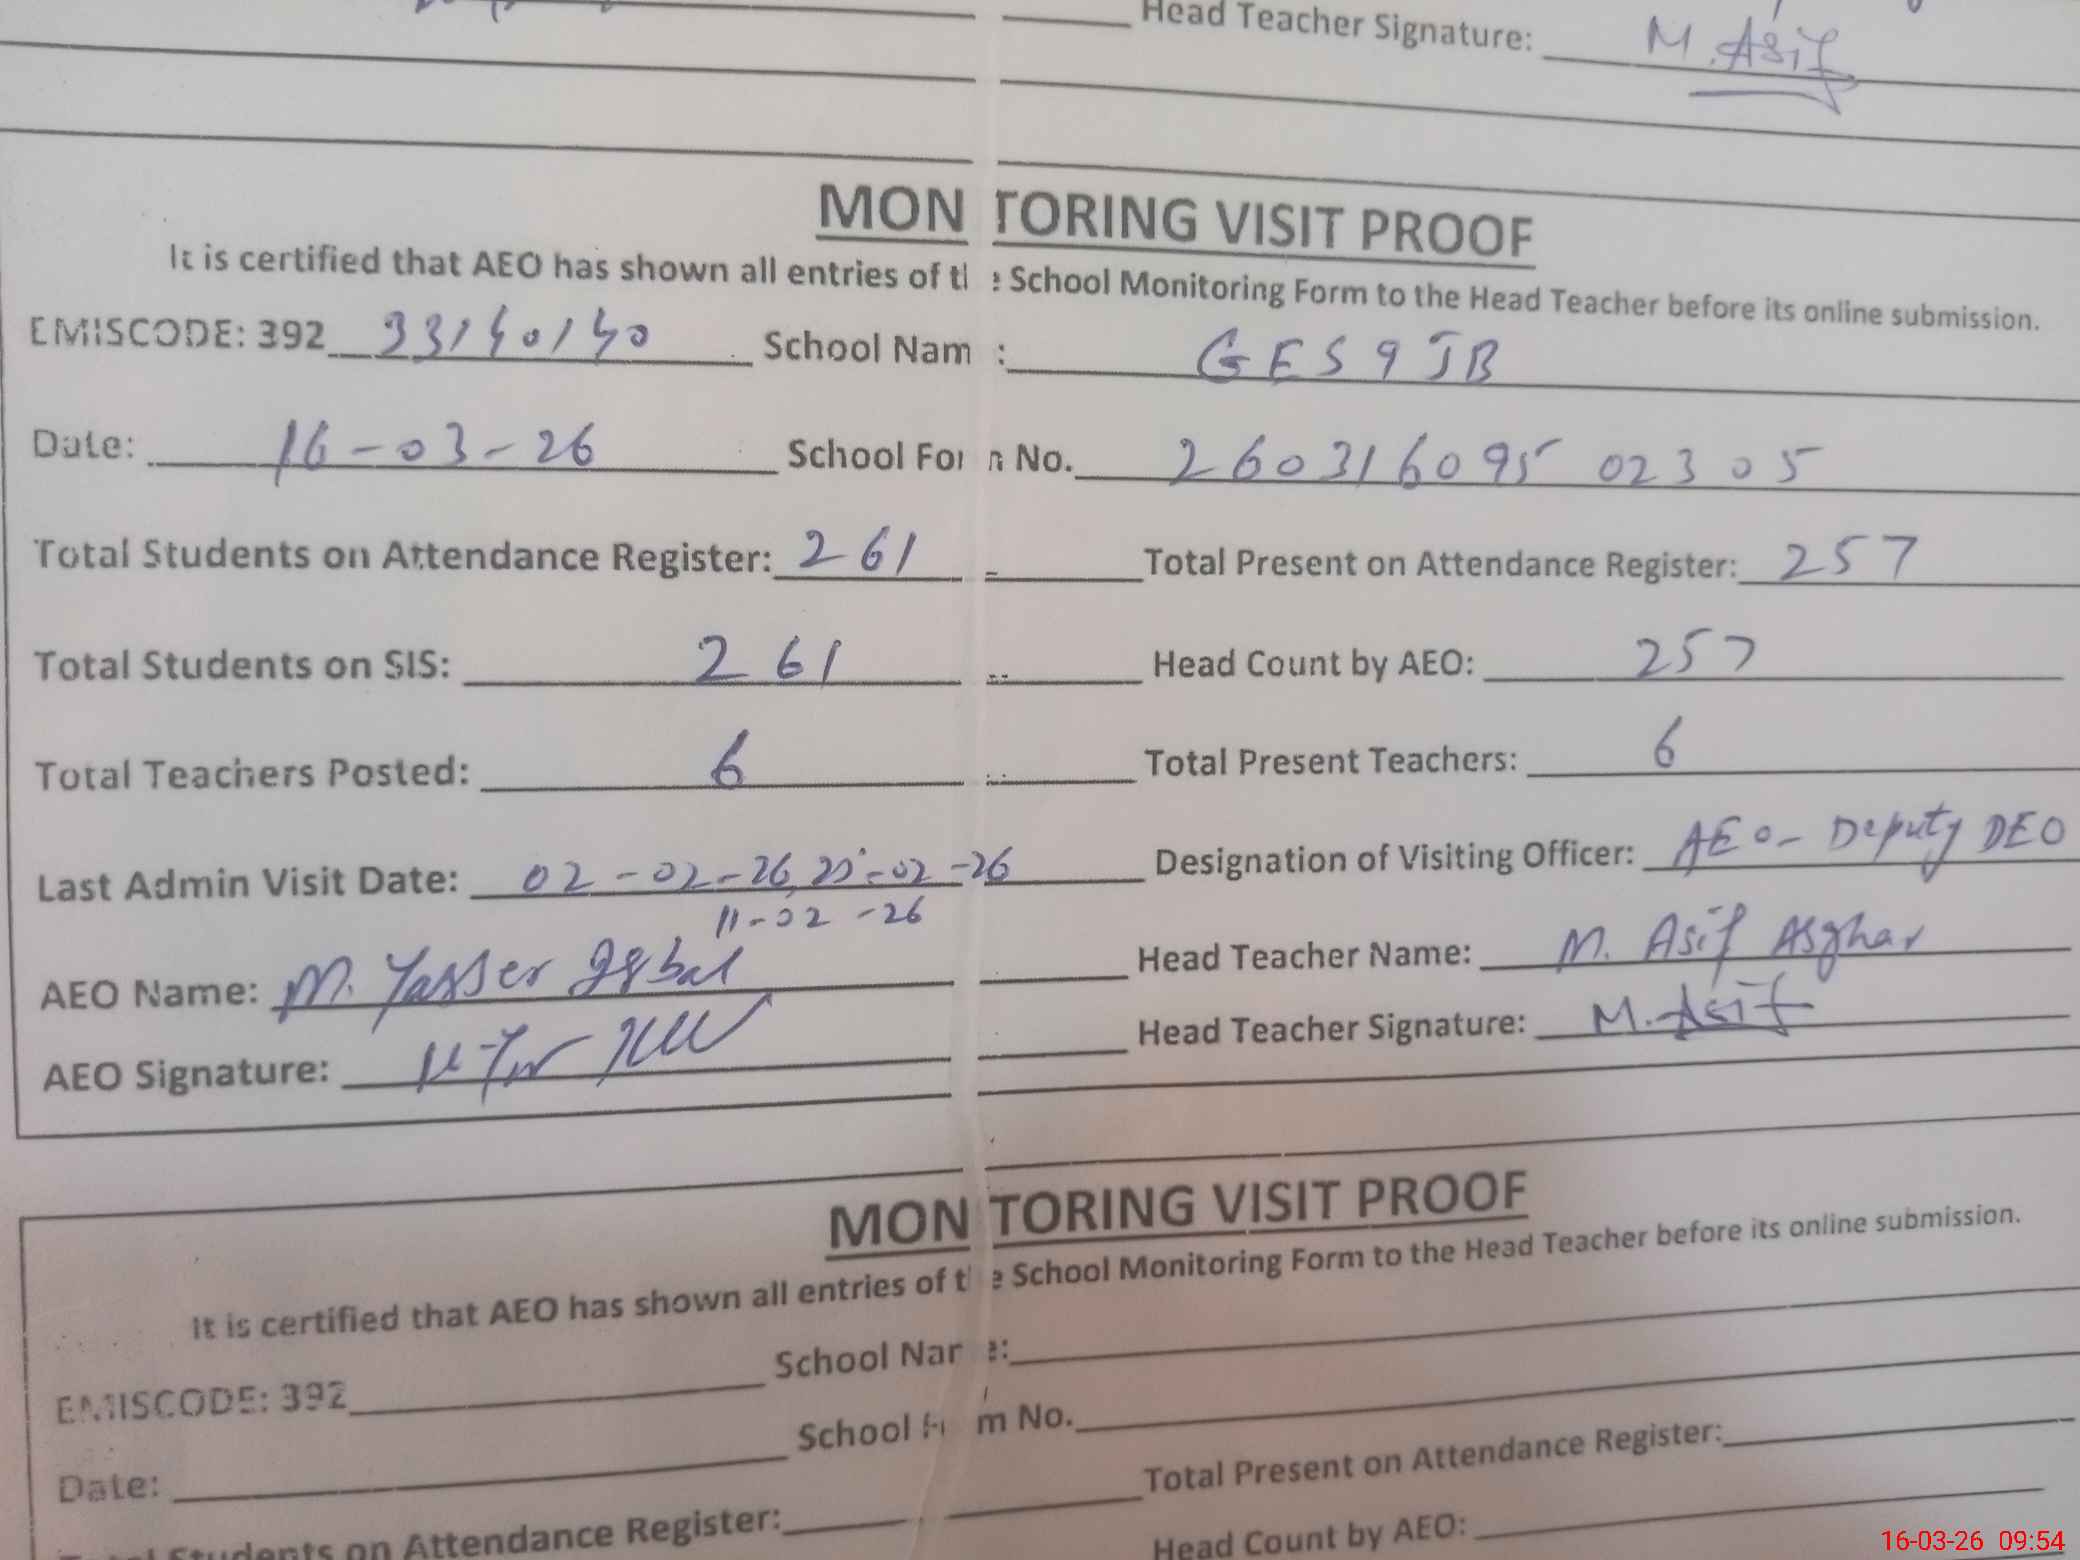 Head Teacher Signature: M. Asif
MON TORING VISIT PROOF
It is certified that AEO has shown all entries of th e School Monitoring Form to the Head Teacher before its online submission.
EMISCODE: 392 33140140 School Nam : GES 9 JB
Date: 16-03-26 School For m No. 260316095 02305
Total Students on Attendance Register: 261 Total Present on Attendance Register: 257
Total Students on SIS: 261 Head Count by AEO: 257
Total Teachers Posted: 6 Total Present Teachers: 6
Last Admin Visit Date: 02-02-26, -02-26 Designation of Visiting Officer: AEO- Deputy DEO
11-02-26
AEO Name: M. Yasser Iqbal Head Teacher Name: M. Asif Asghar
AEO Signature: Head Teacher Signature: M. Asif
MON TORING VISIT PROOF
It is certified that AEO has shown all entries of t e School Monitoring Form to the Head Teacher before its online submission.
EMISCODE: 392 School Nam e:
Date: School F m No.
Students on Attendance Register: Total Present on Attendance Register:
Head Count by AEO:
16-03-26 09:54